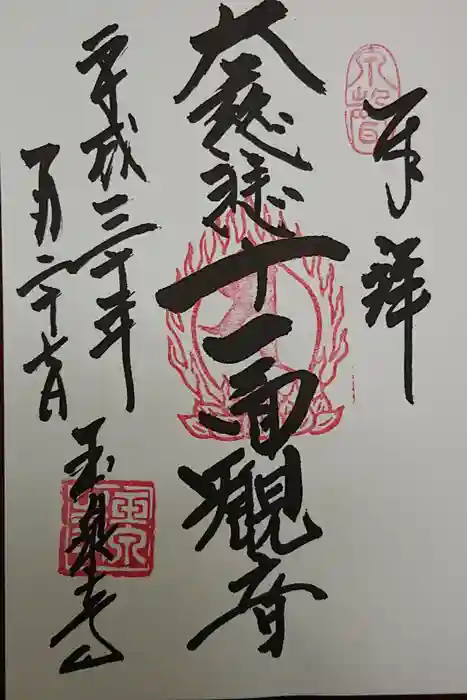 奉拝
大慈悲十一面観音
平成三十年
月二十七日
玉泉寺